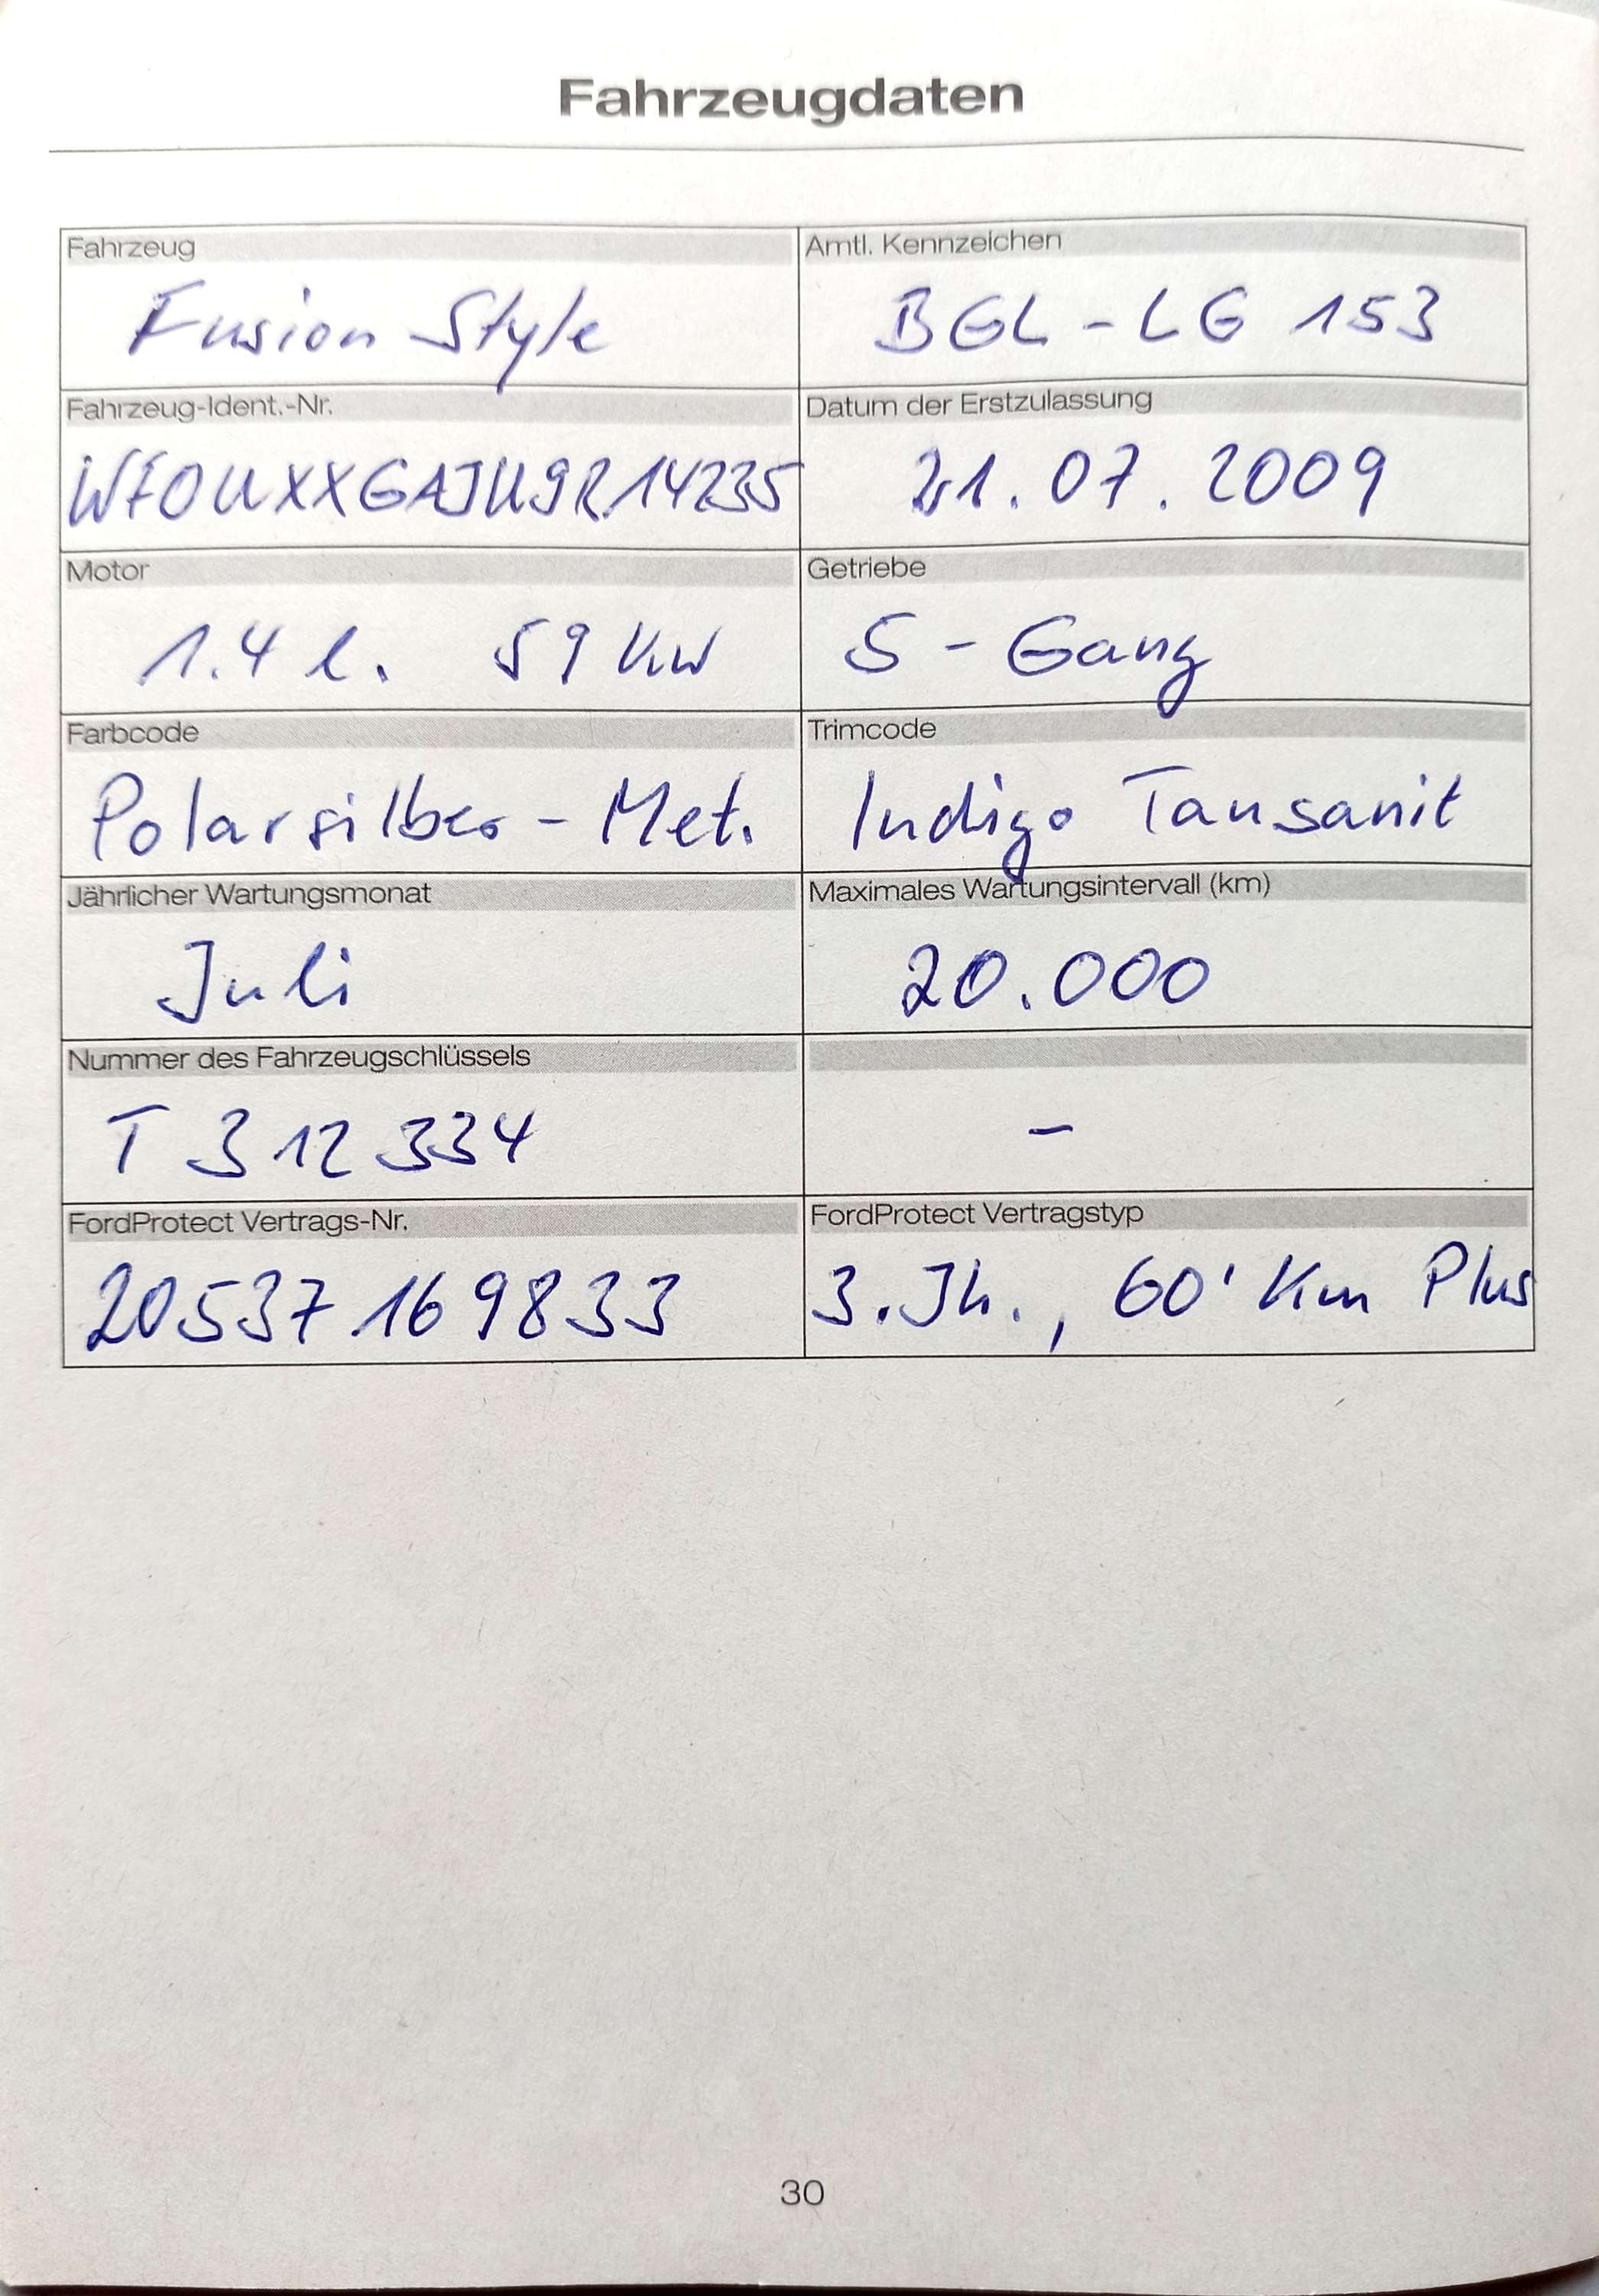 Fahrzeugdaten
Fahrzeug
Amtl. Kennzeichen
Fusion Style
BGL - LG 153
Fahrzeug-Ident.-Nr.
Datum der Erstzulassung
WF0UXXGAJU9R14235
21.07.2009
Motor
Getriebe
1.4 l. 59 KW
5 - Gang
Farbcode
Trimcode
Polarsilber - Met.
Indigo Tansanit
Jährlicher Wartungsmonat
Maximales Wartungsintervall (km)
Juli
20.000
Nummer des Fahrzeugschlüssels
T 312 334
-
FordProtect Vertrags-Nr.
FordProtect Vertragstyp
20537169833
3. Jh., 60' Km Plus
30